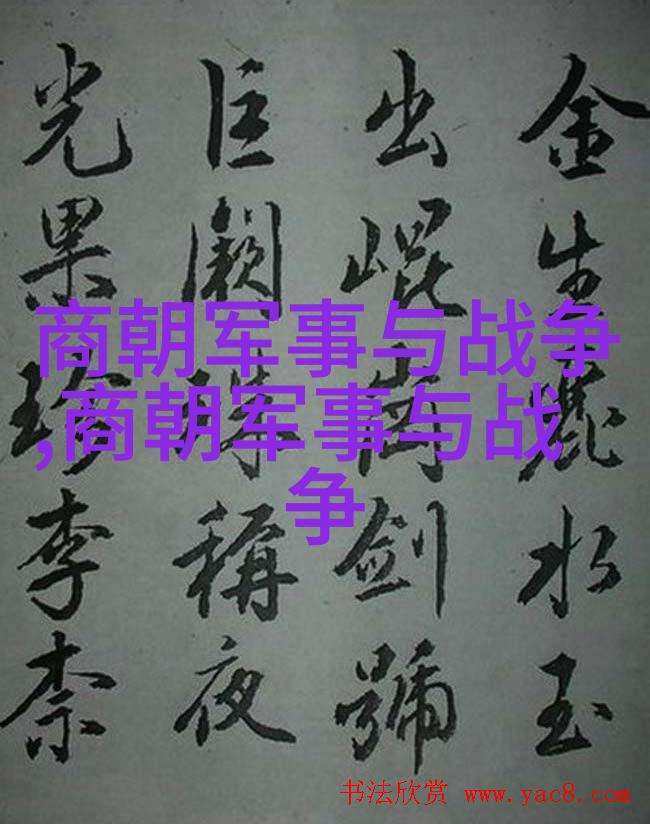 金生麗水玉
出崐岡劍號
巨闕珠稱夜
光果珍李柰
商朝军事与战争
,商朝军事与战
争
书法欣赏 www.yac8.com